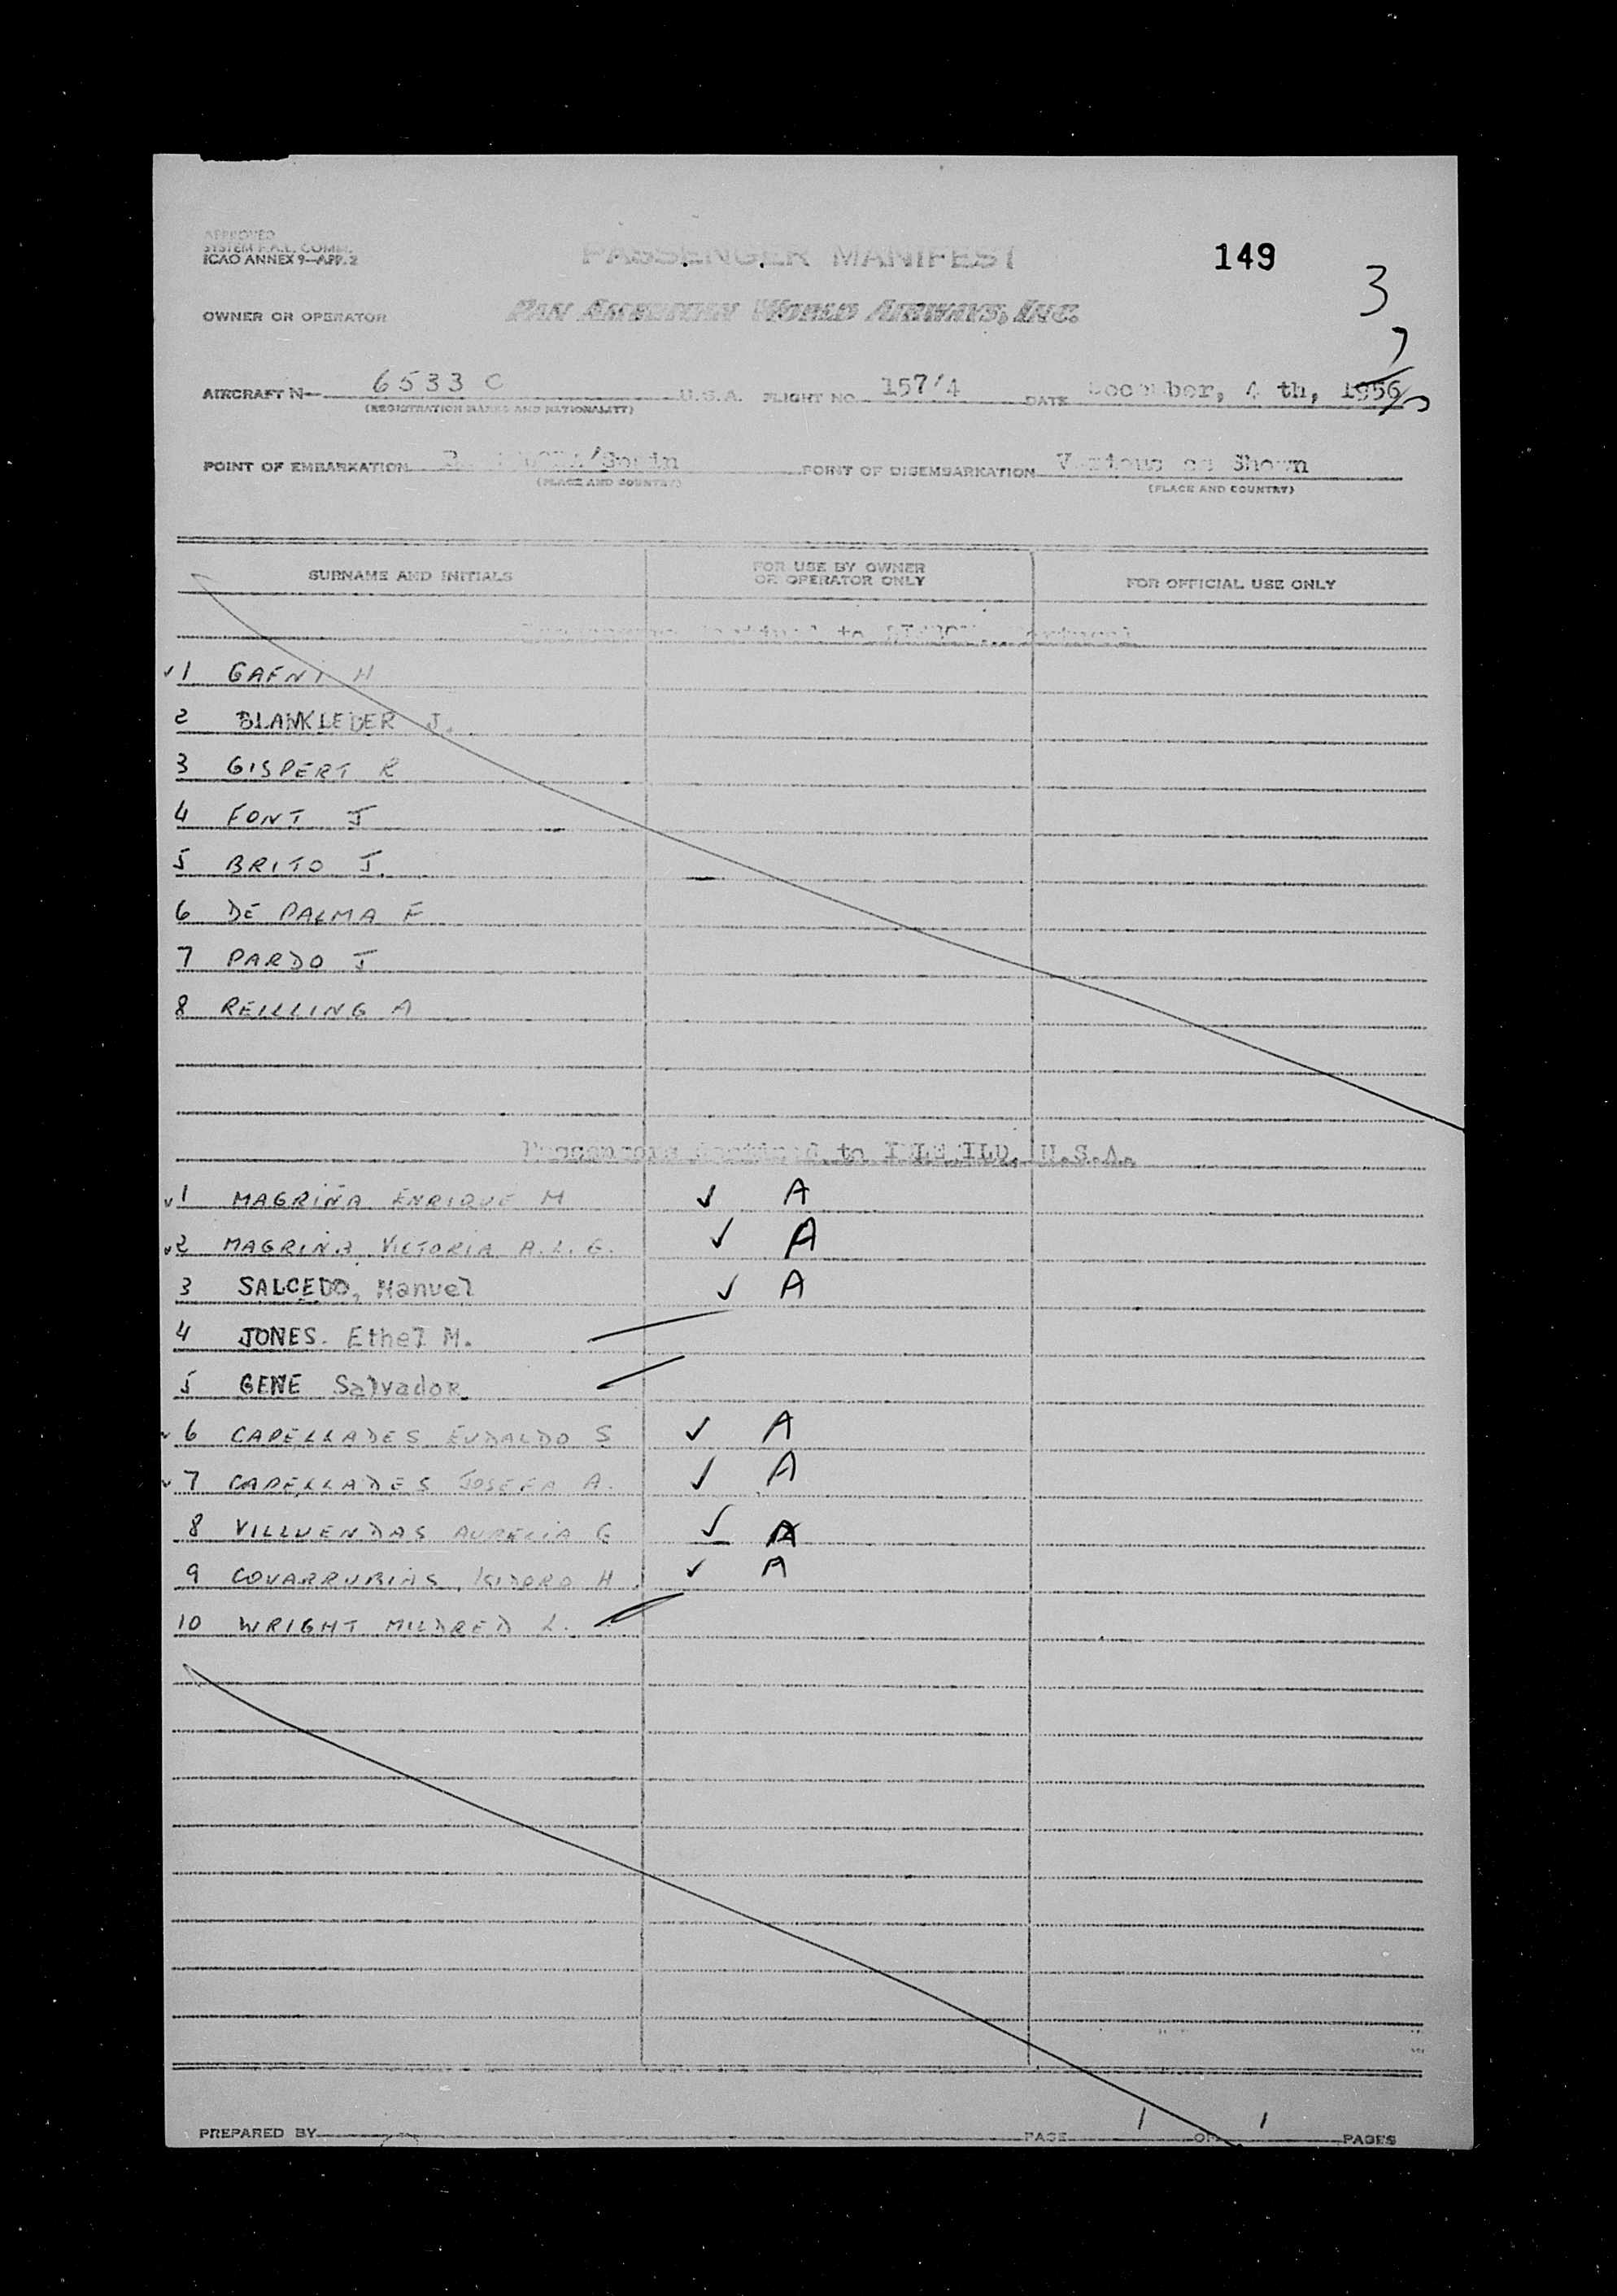 APPROVED
SYSTEM F.A.L. COMM.
ICAO ANNEX 9—APP. 2
PASSENGER MANIFEST
149
3
OWNER OR OPERATOR PAN AMERICAN WORLD AIRWAYS, INC.
7
AIRCRAFT N— 6533 C U.S.A. FLIGHT NO. 157/4 DATE December, 4 th, 1956
(REGISTRATION MARKS AND NATIONALITY)
POINT OF EMBARKATION BARCELONA/Spain POINT OF DISEMBARKATION Various as Shown
(PLACE AND COUNTRY) (PLACE AND COUNTRY)
SURNAME AND INITIALS FOR USE BY OWNER OR OPERATOR ONLY FOR OFFICIAL USE ONLY
Passengers destined to LISBON, Portugal
✓ 1 GAFNI H
2 BLANKLEDER J.
3 GISPERT R
4 FONT J
5 BRITO J.
6 DE PALMA F
7 PARDO J
8 REILLING A
Passengers destined to IDLEWILD, U.S.A.
✓ 1 MAGRIÑA ENRIQUE M ✓ A
✓ 2 MAGRIÑA VICTORIA A.L.G. ✓ A
3 SALCEDO, Manuel ✓ A
4 JONES. Ethel M.
5 GENE Salvador
✓ 6 CAPELLADES EUDALDO S ✓ A
✓ 7 CAPELLADES JOSEFA A. ✓ A
8 VILLUENDAS AURELIA G ✓ A
9 COVARRUBIAS, ISIDORO H. ✓ A
10 WRIGHT MILDRED L.
PREPARED BY PAGE 1 OF 1 PAGES